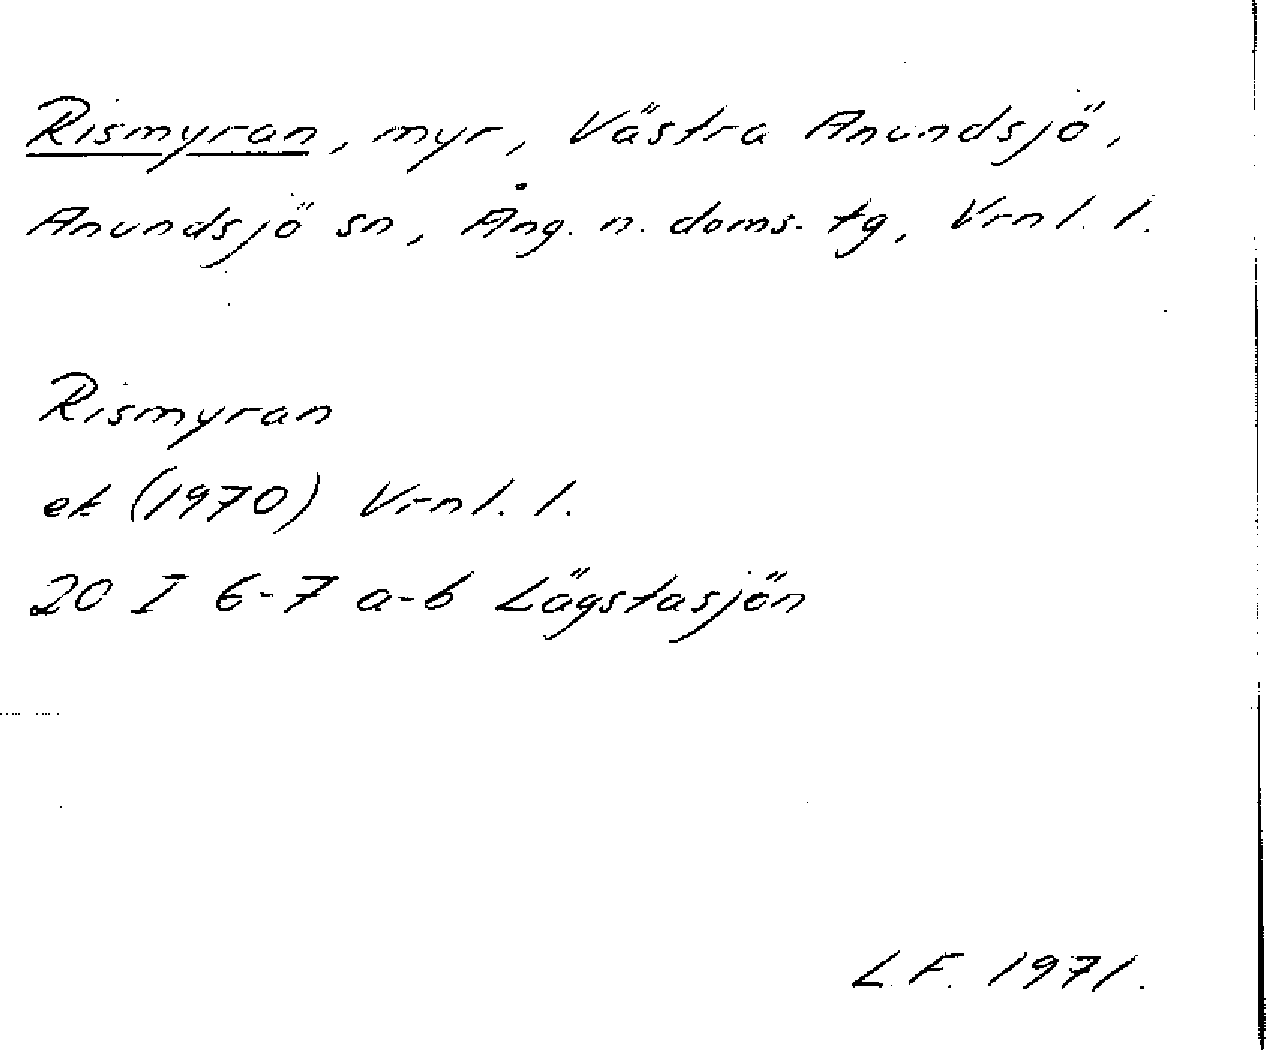 Rismyran, myr, Västra Anundsjö,
Anundsjö sn, Ång. n. doms. tg, Vrnl. l.
Rismyran
ek (1970) Vrnl. l.
20 I 6-7 a-b Lägstasjön
L.F. 1971.